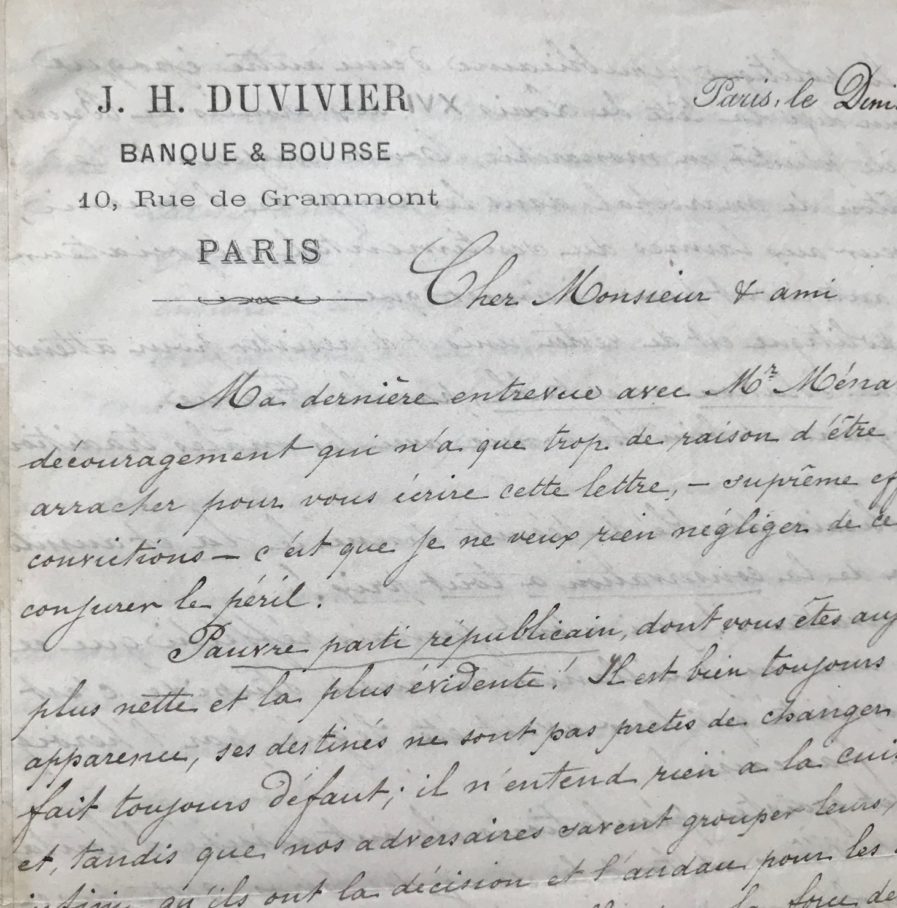 J. H. DUVIVIER
BANQUE & BOURSE
10, Rue de Grammont
PARIS
Paris, le
Cher Monsieur & ami
Ma dernière entrevue avec Mr Ména
découragement qui n'a que trop de raison d'être
arracher pour vous écrire cette lettre, – suprême ef
convictions – c'est que je ne veux rien négliger de ce
conjurer le péril.
Pauvre parti républicain, dont vous êtes auj
plus nette et la plus évidente! Il est bien toujours
apparence, ses destinés ne sont pas pretes de changer
fait toujours défaut; il n'entend rien a la cuis
et, tandis que nos adversaires savent grouper leurs
qu'ils ont la décision et l'audace pour les
la force de